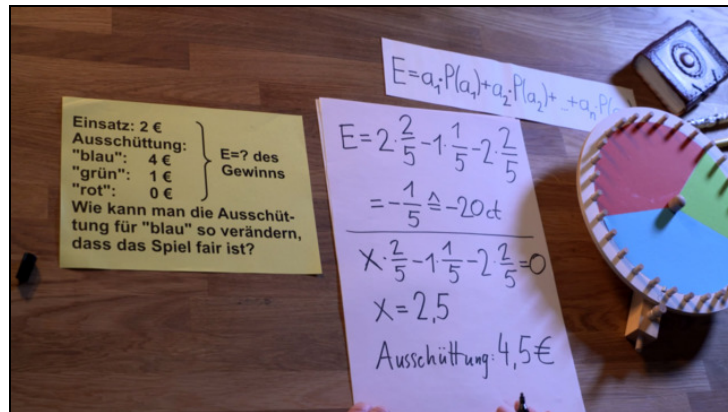 E=a₁·P(a₁)+a₂·P(a₂)+...+aₙ·P(a
Einsatz: 2 €
Ausschüttung:
"blau": 4 €
"grün": 1 €
"rot": 0 €
E=? des
Gewinns
Wie kann man die Ausschüt-
tung für "blau" so verändern,
dass das Spiel fair ist?
E=2·2/5-1·1/5-2·2/5
=-1/5≙-20ct
x·2/5-1·1/5-2·2/5=0
x=2,5
Ausschüttung: 4,5€